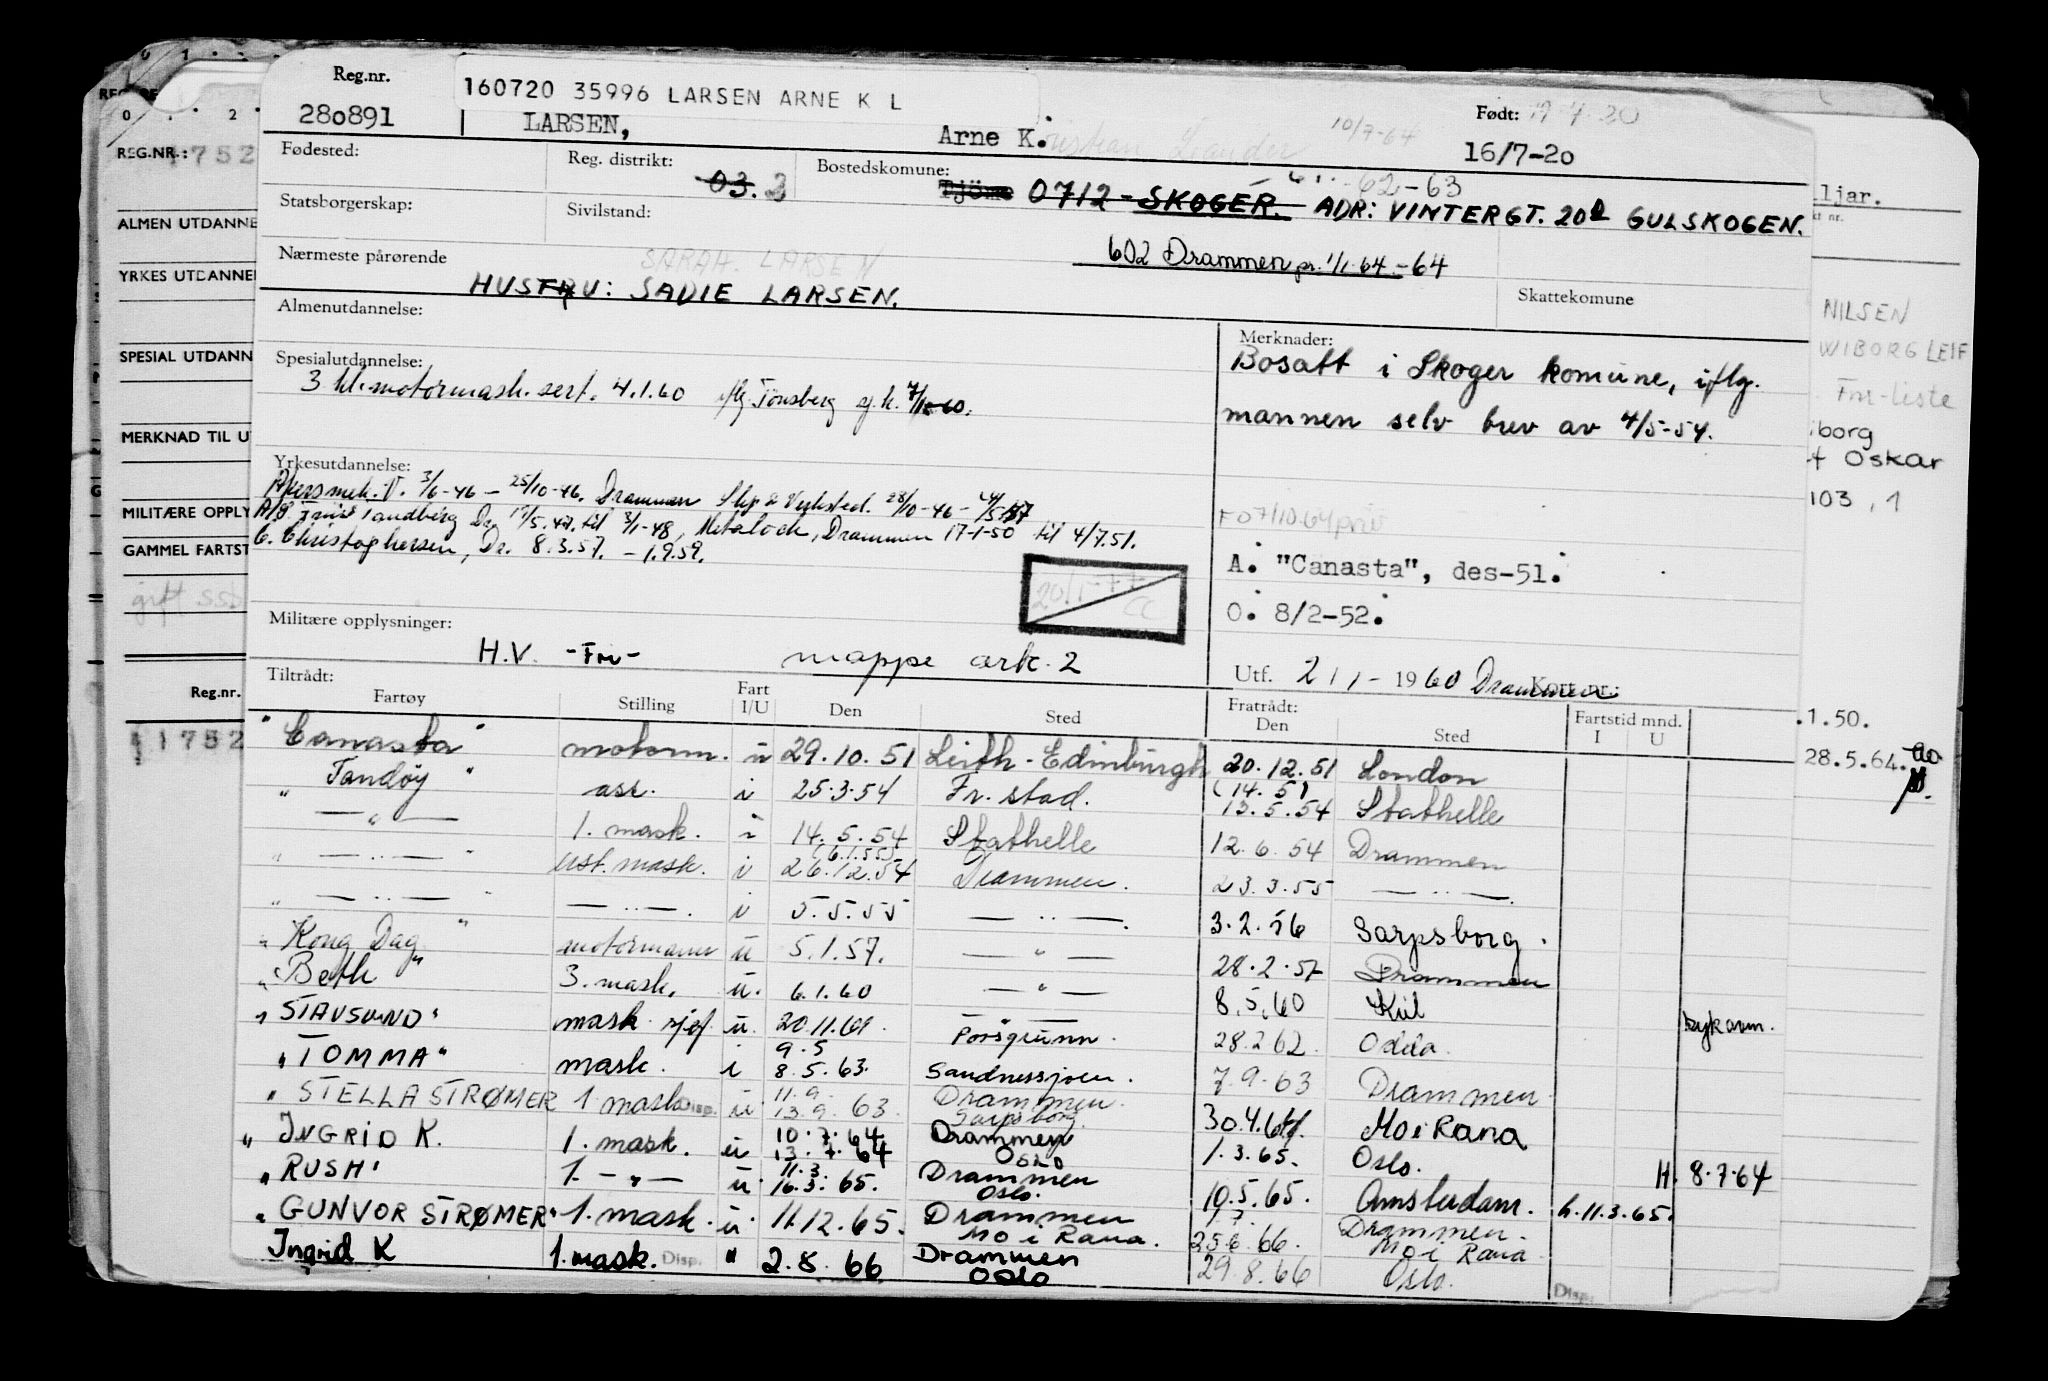 Reg.nr.
160720 35996 LARSEN ARNE K L
Født:
28o891
LARSEN,
Arne K.
10/7-64
16/7-2o
Fødested:
Reg. distrikt:
03. 3
Bostedskomune:
Tjöme 0712 - SKOGER. ADR: VINTERGT. 20 GULSKOGEN.
62-63
Statsborgerskap:
Sivilstand:
602 Drammen pr. 1/1-64.-64
Nærmeste pårørende
SARAH. LARSEN
HUSTRU: SADIE LARSEN.
Skattekomune
Almenutdannelse:
Merknader:
Bosatt i Skoger komune, iflg.
mannen selv brev av 4/5-54.
Spesialutdannelse:
3 kl. motormask. sert. 4.1.60 iflg. Tønsberg
Yrkesutdannelse:
Akers mek. V. 3/6-46 - 25/10-46. Drammen Slip & Verksted. 28/10-46 -
Tandberg Dr. til 3/1-48, Metalock, Drammen 17-1-50 til 4/7.51.
C. Christophersen, Dr. 8.3.57. - 1.9.59.
A. "Canasta", des-51.
O. 8/2-52.
Militære opplysninger:
H.V. -Fri-
mappe ark. 2
Utf. 2 / 1 - 1960 Drammen
Kort nr.:
Tiltrådt:
Fartøy
Stilling
Fart I/U
Den
Sted
Fratrådt:
Den
Sted
Fartstid mnd.
I U
"Canasta" motorm. u 29.10.51 Leith - Edinburgh 20.12.51 London
" Tandøy " ass. i 25.3.54 Fr. stad. (14.5) 13.5.54 Stathelle
— " — 1. mask. i 14.5.54 Stathelle 12.6.54 Drammen
" — " — " mask. i (6.1.55) 26.12.54 Drammen. 23.3.55 — " —.
" — " — " — " —. i 5.5.55 — " —. 3.2.56 Sarpsborg.
" Kong Dag " motormann u 5.1.57. — " — 28.2.57 Drammen
" Beth " 3. mask. u. 6.1.60 — " — 8.5.60 Kiel
" STAVSUND" mask sjef u. 20.11.61. Porsgrunn. 28.2.62. Odda. sykavm.
"TOMMA" mask. i 9.5 8.5.63. Sandnessjøen. 7.9.63 Drammen
" STELLA STRØMER 1 mask Disp. u. 11.9. 13.9.63. Drammen. Sarpsborg. 30.4.64. Mo i Rana
" INGRID K. 1. mask. u 10.7.64 13.7.64 Drammen Oslo 1.3.65. Oslo. H. 8.7.64
" RUSH" 1. — " — u 11.3. 16.3.65. Drammen Oslo. 10.5.65. Amsterdam. h. 11.3.65.
" GUNVOR STRØMER" 1. mask. u. 11.12.65. Drammen Mo i Rana. 1.7. 25.6.66. Drammen. Mo i Rana
Ingrid K 1. mask. Disp. " 2.8.66 Drammen Oslo 29.8.66 Oslo. Disp.
REG.NR.: 1752
ALMEN UTDANNE
YRKES UTDANNE
SPESIAL UTDANN
MERKNAD TIL U
MILITÆRE OPPLY
GAMMEL FARTST
gift
Reg.nr.
1752
ljar.
NILSEN
WIBORG LEIF
Fm-liste
borg
Oskar
103, 1
.1.50.
28.5.64.